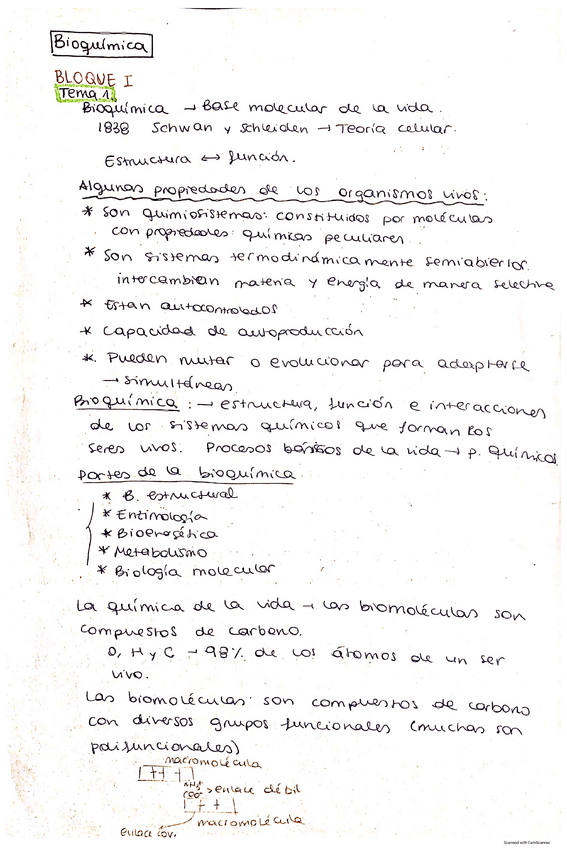 Bioquímica
BLOQUE I
Tema 1.
Bioquímica → Base molecular de la vida.
1838 Schwan y Schleiden → Teoría celular.
Estructura ↔ función.
Algunas propiedades de los organismos vivos:
* Son quimiosistemas: constituidos por moléculas
con propiedades químicas peculiares.
* Son sistemas termodinámicamente semiabiertos.
intercambian materia y energía de manera selectiva
* Están autocontrolados
* Capacidad de autoproducción
* Pueden mutar o evolucionar para adaptarse
→ simultáneas.
Bioquímica: → estructura, función e interacciones
de los sistemas químicos que forman los
seres vivos. Procesos básicos de la vida → p. químicos
partes de la bioquímica.
* B. estructural
* Entimología
* Bioenegética
* Metabolismo
* Biología molecular
La química de la vida → las biomoléculas son
compuestos de carbono.
O, H y C → 98% de los átomos de un ser
vivo.
Las biomoléculas son compuestos de carbono
con diversos grupos funcionales (muchas son
polifuncionales)
macromolécula
+ + +
COO⁻ > enlace débil
+ +
macromolécula
enlace cov.
Scanned with CamScanner